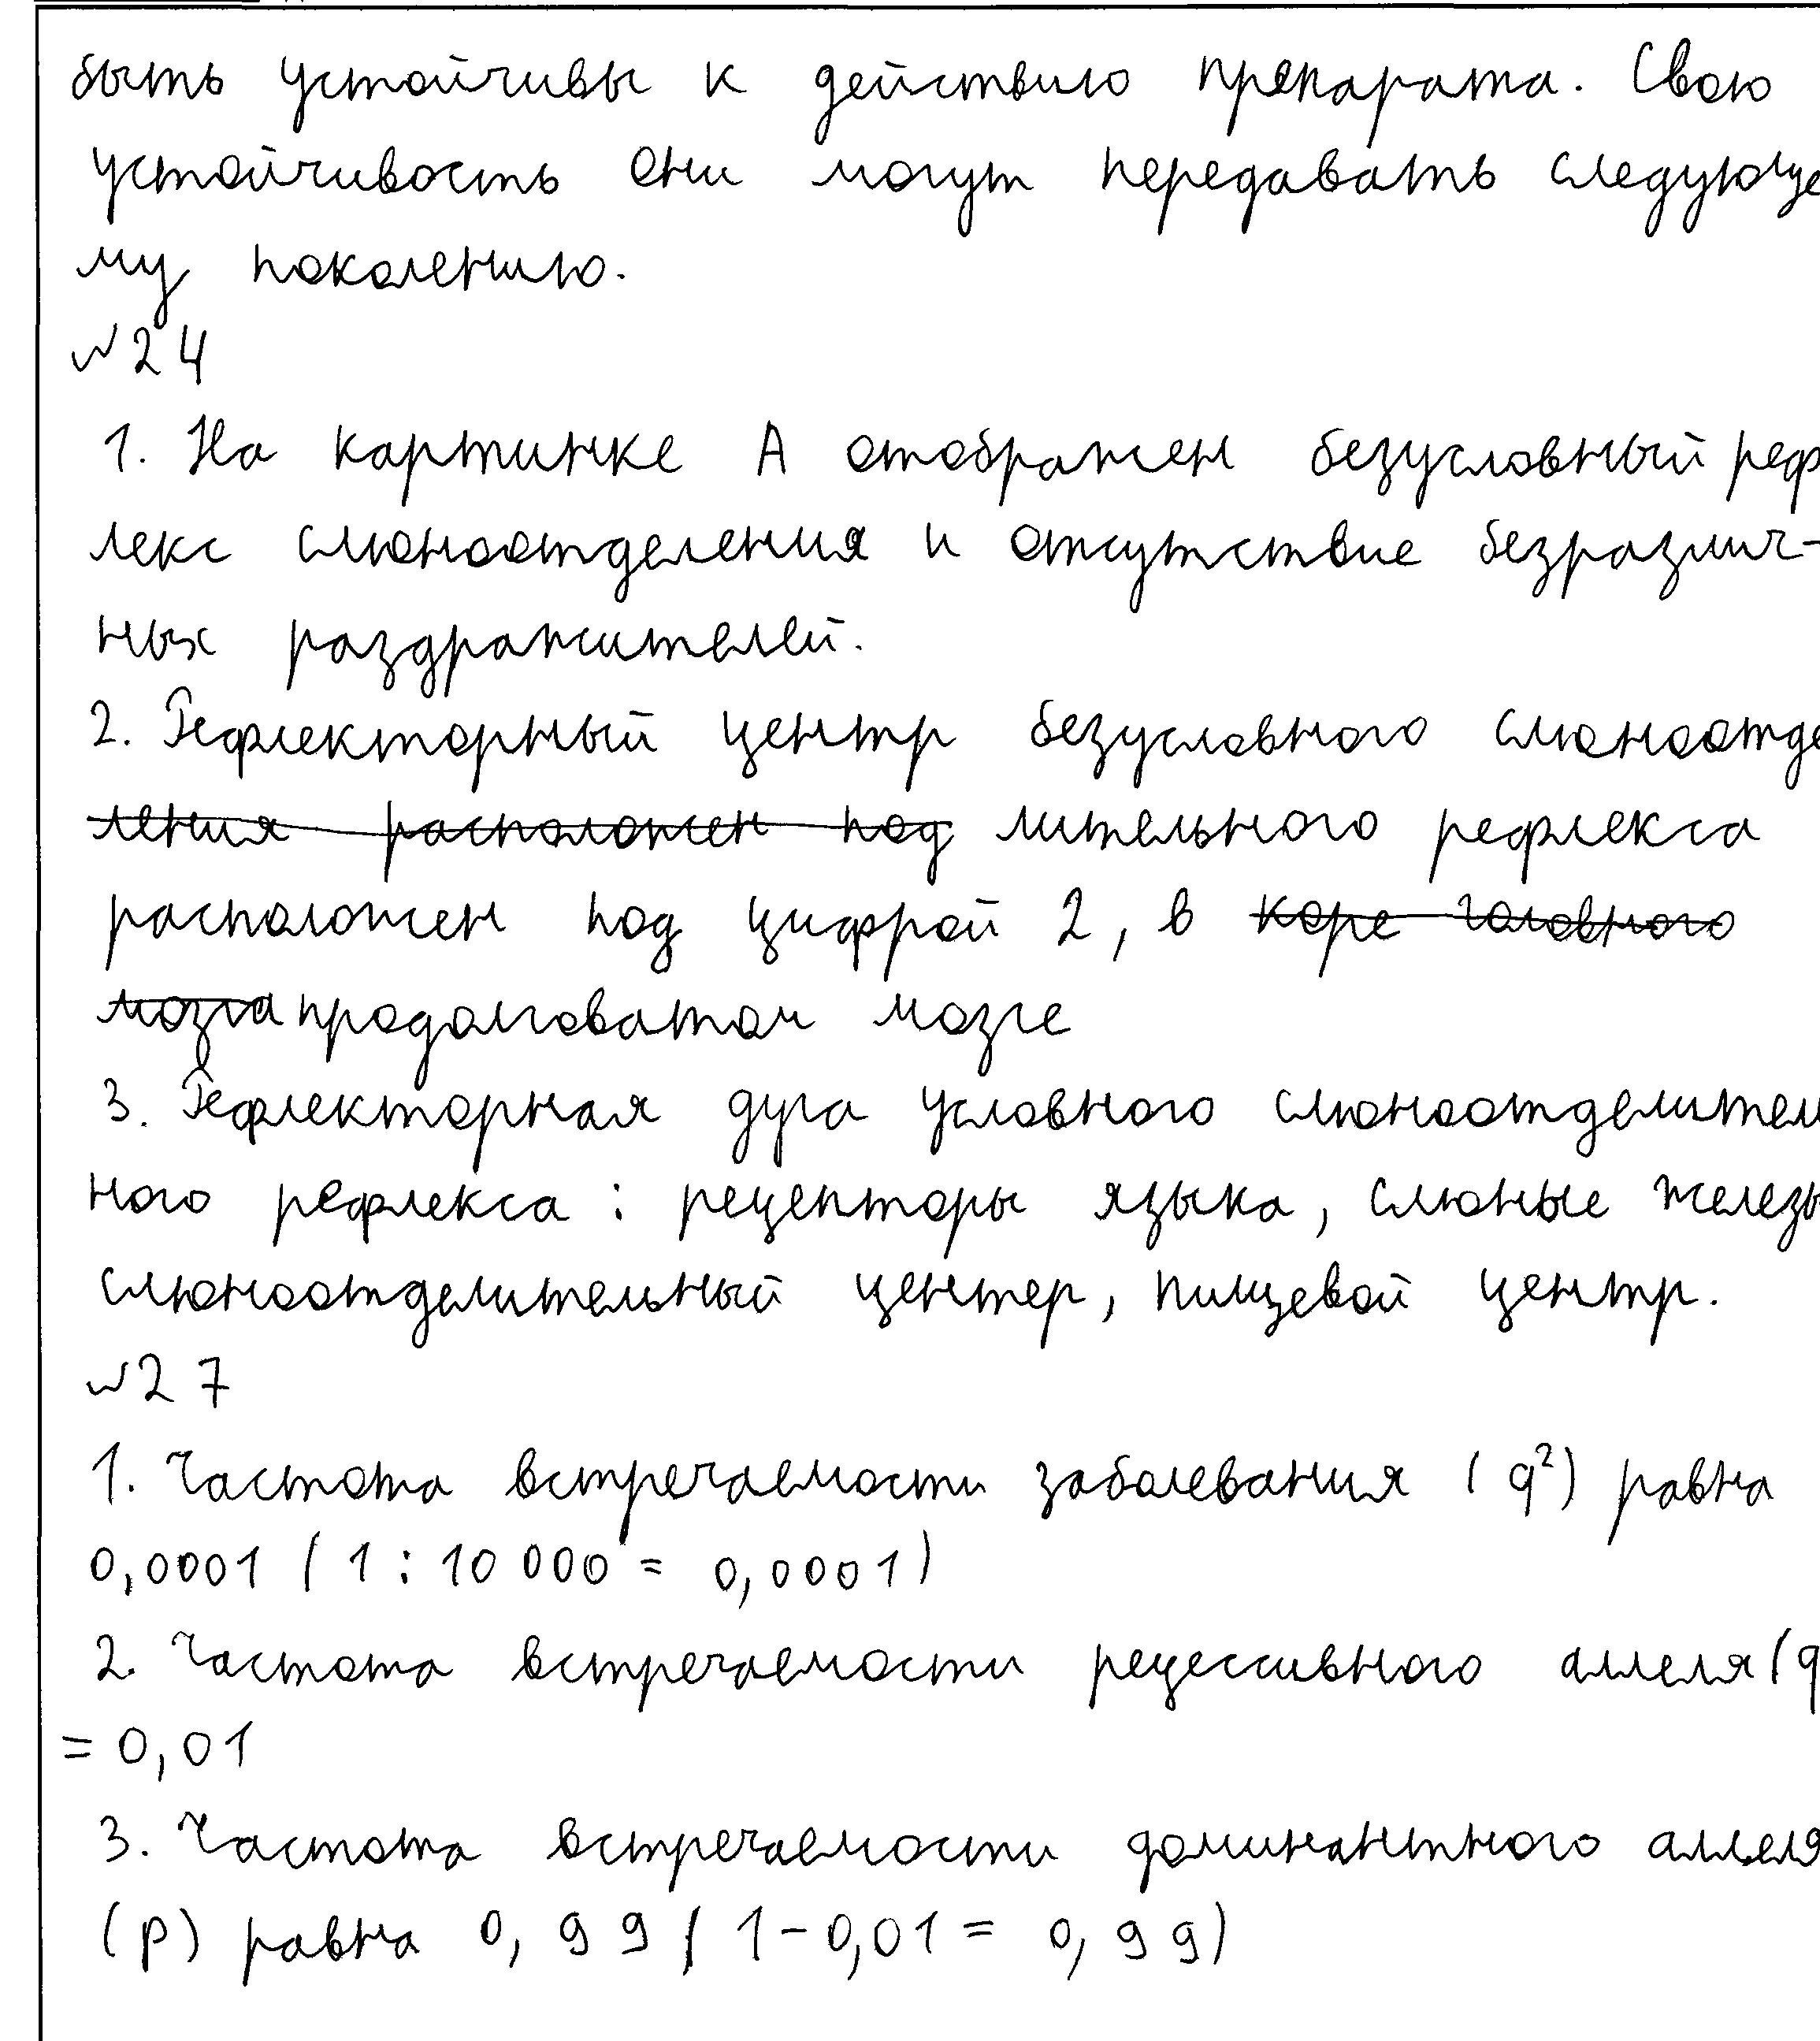 быть устойчивы к действию препарата. Свою
устойчивость они могут передавать следующе
му поколению.
№24
1. На картинке А отображен безусловный реф
лекс слюноотделения и отсутствие безразлич-
ных раздражителей.
2. Рефлекторный центр безусловного слюноотде
ления расположен под лительного рефлекса
расположен под цифрой 2, в коре головного
мозга продолговатом мозге
3. Рефлекторная дуга условного слюноотделител
ного рефлекса: рецепторы языка, слюные железы
слюноотделительный центер, пищевой центр.
№27
1. Частота встречаемости заболевания (q²) равна
0,0001 (1:10 000 = 0,0001)
2. Частота встречаемости рецессивного аллеля (q
= 0,01
3. Частота встречаемости доминантного аллеля
(p) равна 0,99 (1-0,01= 0,99)